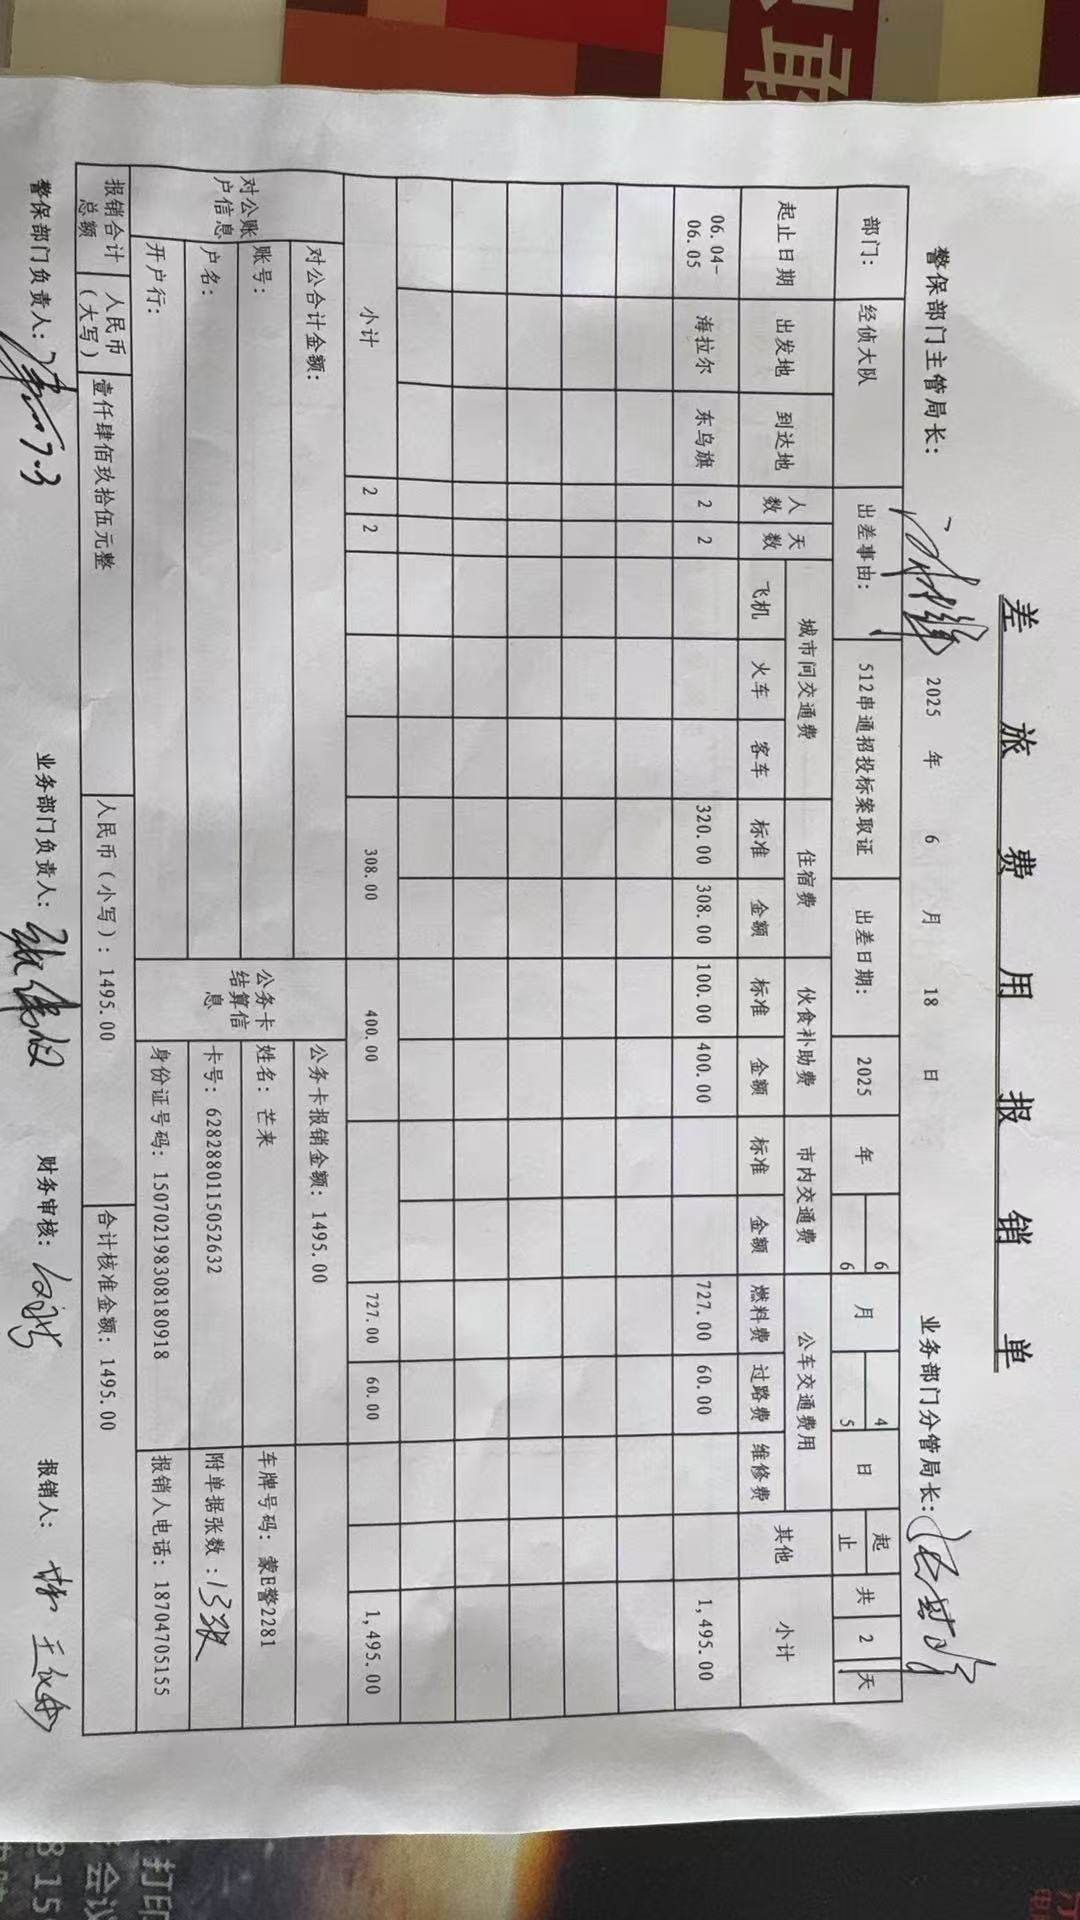 差旅费用报销单
警保部门主管局长： 2025 年 6 月 18 日 业务部门分管局长：
部门： 经侦大队 出差事由： 512串通招投标案取证 出差日期： 2025 年 6 月 4 日 起 共 2 天
6 5 止
起止日期 出发地 到达地 人数 天数 城市间交通费 住宿费 伙食补助费 市内交通费 公车交通费用 其他 小计
飞机 火车 客车 标准 金额 标准 金额 标准 金额 燃料费 过路费 维修费
06.04-06.05 海拉尔 东乌旗 2 2 320.00 308.00 100.00 400.00 727.00 60.00 1,495.00
小计 2 2 308.00 400.00 727.00 60.00 1,495.00
对公账户信息 对公合计金额： 公务卡结算信息 公务卡报销金额：1495.00
账号： 姓名：芒来 车牌号码：蒙E警2281
户名： 卡号：6282880115052632 附单据张数：13张
开户行： 身份证号码：150702198308180918 报销人电话：18704705155
报销合计总额 人民币（大写） 壹仟肆佰玖拾伍元整 人民币（小写）：1495.00 合计核准金额：1495.00
警保部门负责人： 业务部门负责人： 财务审核： 报销人：
打印
会议
815